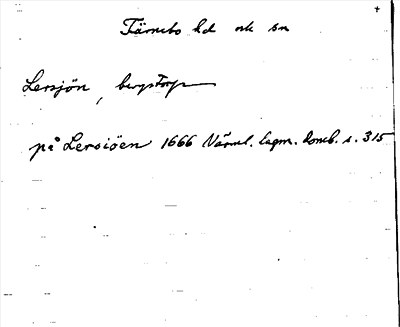 +
Färnebo hd och sn
Lersjön, bergstorp
på Lersiöen 1666 Värml. lagm. domb. s. 315